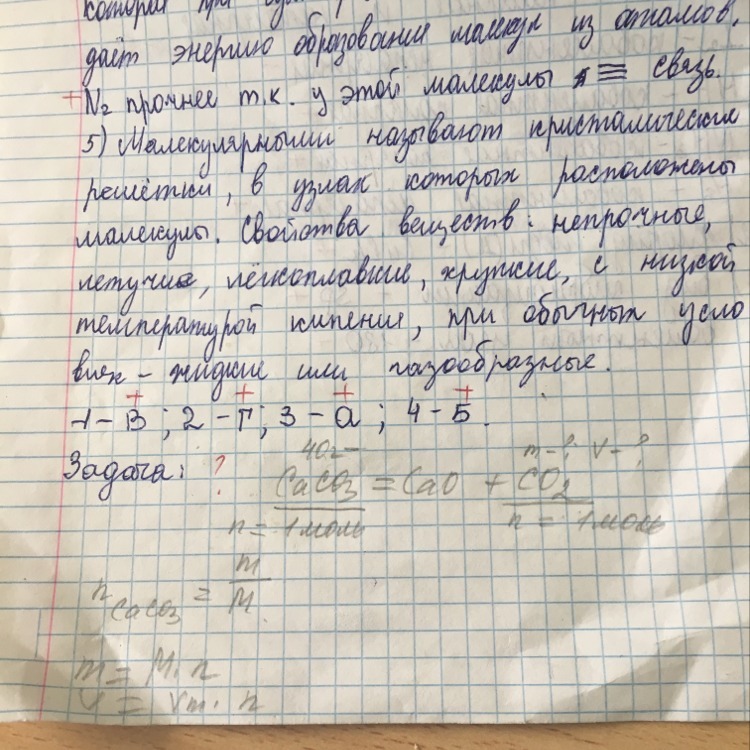 которая при
даёт энергию образования малекул из атомов.
+ N₂ прочнее т.к. у этой малекулы ≡ связь.
5) Малекулярными называют кристалические
решётки, в узлах которых расположены
малекулы. Свойства веществ: непрочные,
летучие, легкоплавкие, хрупкие, с низкой
температурой кипения, при обычных усло
виях – жидкие или газообразные.
+ + + +
1 – В ; 2 – Г ; 3 – а ; 4 – Б .
40г m-? V-?
Задача: ? CaCO₃ = CaO + CO₂
n = 1 моль n = 1 моль
n CaCO₃ = m/M
m = M · n
V = Vm · n